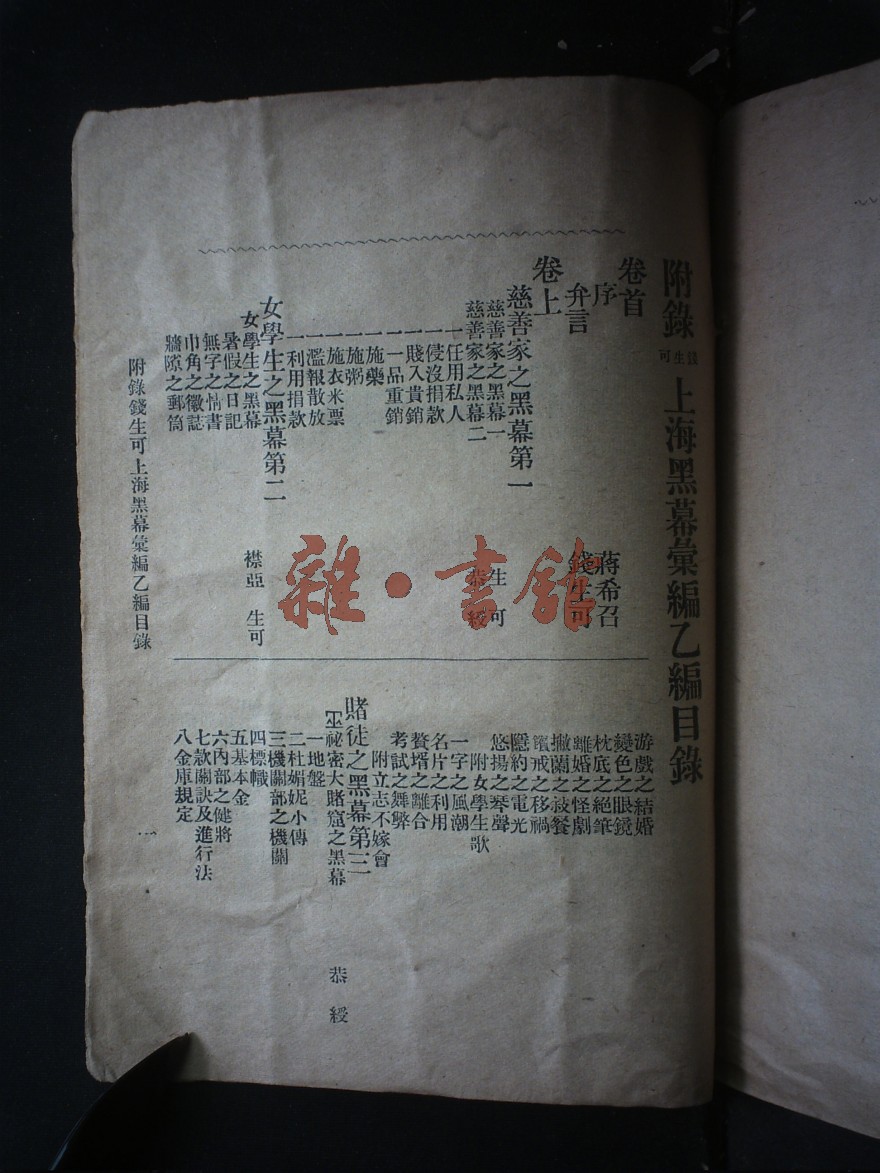 附錄錢生可上海黑幕彙編乙編目錄
卷首
序 蔣希召
弁言 錢生可
卷上
慈善家之黑幕第一
慈善家之黑幕一 生可
慈善家之黑幕二 恭綬
一任用私人
一侵沒捐款
一賤入貴銷
一一品重銷
一施藥
一施粥
一施衣米票
一濫報散放
一利用捐款
女學生之黑幕第二
女學生之黑幕 襟亞 生可
暑假之日記
無字之情書
巾角之徽誌
牆隙之郵筒
游戲之結婚
變色之眼鏡
枕底之絕筆
離婚之怪劇
撇蘭之設餐
之移禍
隱約之電光
悠揚之琴聲
附女學生歌
一字之風潮
名片之利用
贅壻之離合
考試之舞弊
附立志不嫁會
賭徒之黑幕第三
巫祕密大賭窟之黑幕 恭綬
一地盤
二杜媚妮小傳
三機關部之機關
四標幟
五基本金
六內部之健將
七款關訣及進行法
八金庫規定
附錄錢生可上海黑幕彙編乙編目錄
一
雜·書館